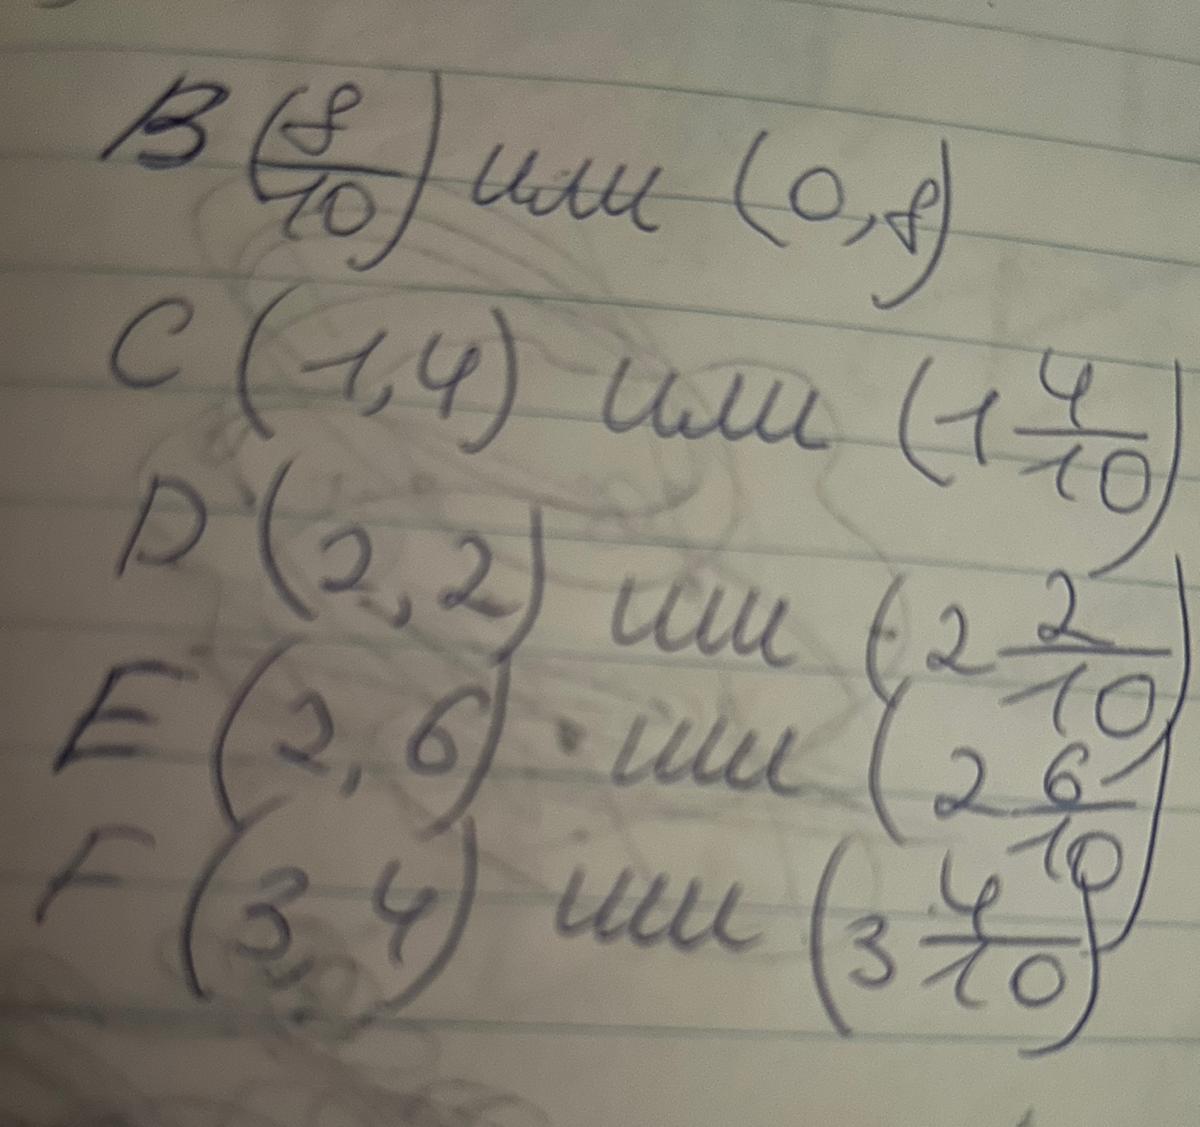 B (8/10) или (0,8)
C (1,4) или (1 4/10)
D (2,2) или (2 2/10)
E (2,6) или (2 6/10)
F (3,4) или (3 4/10)